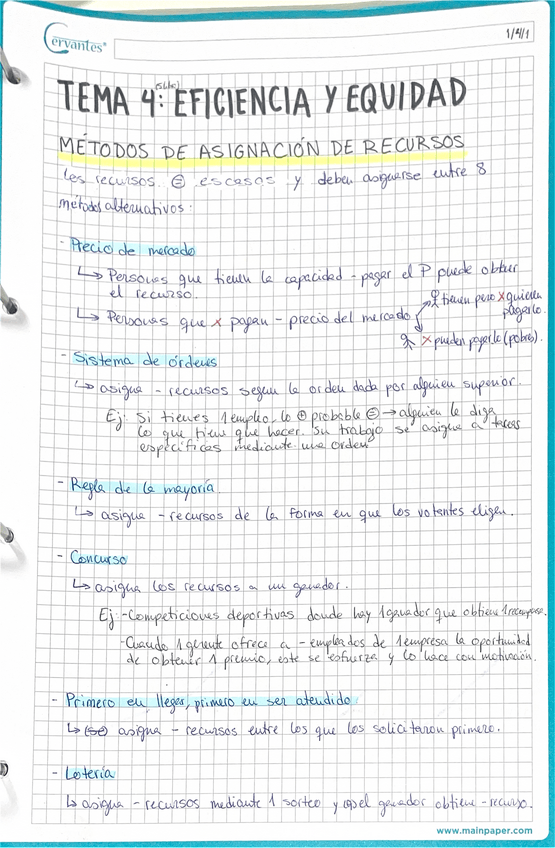 Cervantes®
1/4/1
TEMA 4: EFICIENCIA Y EQUIDAD
MÉTODOS DE ASIGNACIÓN DE RECURSOS
Los recursos ⊖ escasos y deben asignarse entre 8
métodos alternativos:
- Precio de mercado
↳ Personas que tienen la capacidad - pagar el P puede obtener
el recurso.
↳ Personas que x pagan - precio del mercado
tienen pero x quieren
pagarlo.
x pueden pagarlo (pobres).
- Sistema de órdenes
↳ asigna - recursos según la orden dada por alguien superior.
Ej: si tienes 1 empleo, lo ⊕ probable ⊖ → alguien le diga
lo que tiene que hacer. Su trabajo se asigna a tareas
específicas mediante una orden
- Regla de la mayoría
↳ asigna - recursos de la forma en que los votantes eligen.
- Concurso
↳ asigna los recursos a un ganador.
Ej: -Competiciones deportivas donde hay 1 ganador que obtiene 1 recompensa.
-Cuando 1 gerente ofrece a - empleados de 1 empresa la oportunidad
de obtener 1 premio, este se esfuerza y lo hace con motivación.
- Primero en llegar, primero en ser atendido
↳ (se) asigna - recursos entre los que los solicitaron primero.
- Lotería
↳ asigna - recursos mediante 1 sorteo y el ganador obtiene - recurso.
www.mainpaper.com